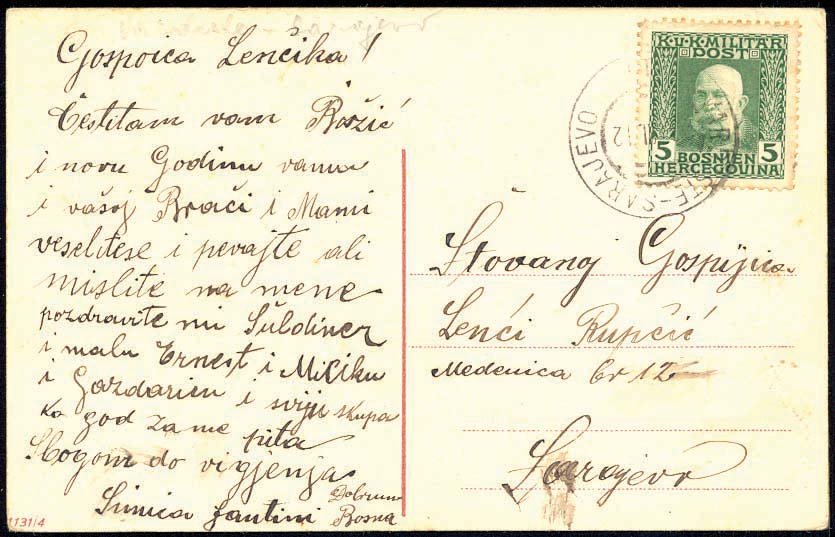 Gospoica Lencika!
Čestitam vam Božić
i novu Godinu vama
i vašoj Brači i Mami
veselitese i pevajte ali
mislite na mene
pozdravite mi
i malu Ernest i Miciku
i Gazdaricu i sviju skupa
ko god za me pita
Sbogom do vigjenja
Simica Jantini
Dobrun
Bosna
1131/4
K.u.K. MILITÄR
POST
5 BOSNIEN 5
HERCEGOVINA
SARAJEVO
12
Štovanoj Gospijica
Lenći Rupčić
Medenica br 12
Sarajevo